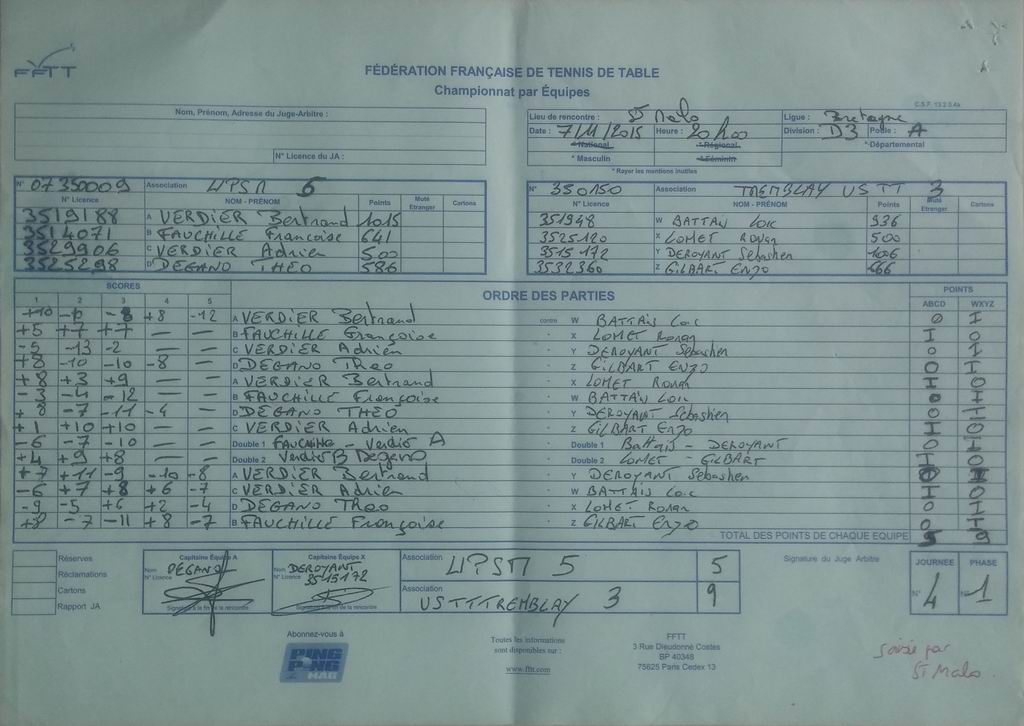 FFTT
FÉDÉRATION FRANÇAISE DE TENNIS DE TABLE
Championnat par Équipes
C.S.F. 13.2.0.4a
Nom, Prénom, Adresse du Juge-Arbitre :
N° Licence du JA :
Lieu de rencontre : ST Malo Ligue : Bretagne
Date : 7/11/2015 Heure : 20h00 Division : D3 Poule : A
* National * Régional * Départemental
* Masculin * Féminin
* Rayer les mentions inutiles
N° 07350009 Association UPSM
N° Licence NOM - PRÉNOM Points Muté Etranger Cartons
3519188 A VERDIER Bertrand 1015
3514071 B FAUCHILLE Françoise 641
3529906 C VERDIER Adrien 500
3525298 D DEGANO THÉO 586
N° 350150 Association TREMBLAY US TT 3
N° Licence NOM - PRÉNOM Points Muté Etranger Cartons
351948 W BATTAIS Loic 936
3525120 X LOMET Ronan 500
3515172 Y DEROYANT Sébastien 1006
3532360 Z GILBART Enzo 666
SCORES ORDRE DES PARTIES POINTS
1 2 3 4 5 ABCD WXYZ
+10 -6 -8 +8 -12 A VERDIER Bertrand contre W BATTAIS Loic 0 I
+5 +7 +7 — — B FAUCHILLE Françoise - X LOMET Ronan I 0
-5 -13 -2 — — C VERDIER Adrien - Y DEROYANT Sébastien 0 I
+8 -10 -10 -8 — D DEGANO Theo - Z GILBART Enzo 0 I
+8 +3 +9 — — A VERDIER Bertrand - X LOMET Ronan I 0
-3 -4 -12 — — B FAUCHILLE Françoise - W BATTAIS Loic 0 I
+8 -7 -11 -4 — D DEGANO THEO - Y DEROYANT Sebastien 0 I
+1 +10 +10 — — C VERDIER Adrien - Z GILBART Enzo I 0
-6 -7 -10 — — Double 1 FAUCHILLE - Verdier A Double 1 Battais - DEROYANT 0 I
+4 +9 +8 — — Double 2 Verdier B Degano Double 2 LOMET - GILBART I 0
+7 +11 -9 -10 -8 A VERDIER Bertrand - Y DEROYANT Sebastien
-6 +7 +8 +6 -7 C VERDIER Adrien - W BATTAIS Loic
-9 -5 +6 +2 -4 D DEGANO Theo - X LOMET Ronan 0 I
+8 -7 -11 +8 -7 B FAUCHILLE Françoise - Z GILBART Enzo 0 I
TOTAL DES POINTS DE CHAQUE EQUIPE 5 9
Réserves
Réclamations
Cartons
Rapport JA
Capitaine Équipe A
Nom DEGANO
N° Licence
Signature à la fin de la rencontre
Capitaine Équipe X
Nom DEROYANT
N° Licence 3515172
Signature à la fin de la rencontre
Association UPSM 5 5
Association US TT TREMBLAY 3 9
Signature du Juge Arbitre
JOURNEE PHASE
N° 4 N° 1
Abonnez-vous à
PING PONG MAG
Toutes les informations
sont disponibles sur :
www.fftt.com
FFTT
3 Rue Dieudonné Costes
BP 40348
75625 Paris Cedex 13
Saisie par
ST Malo.